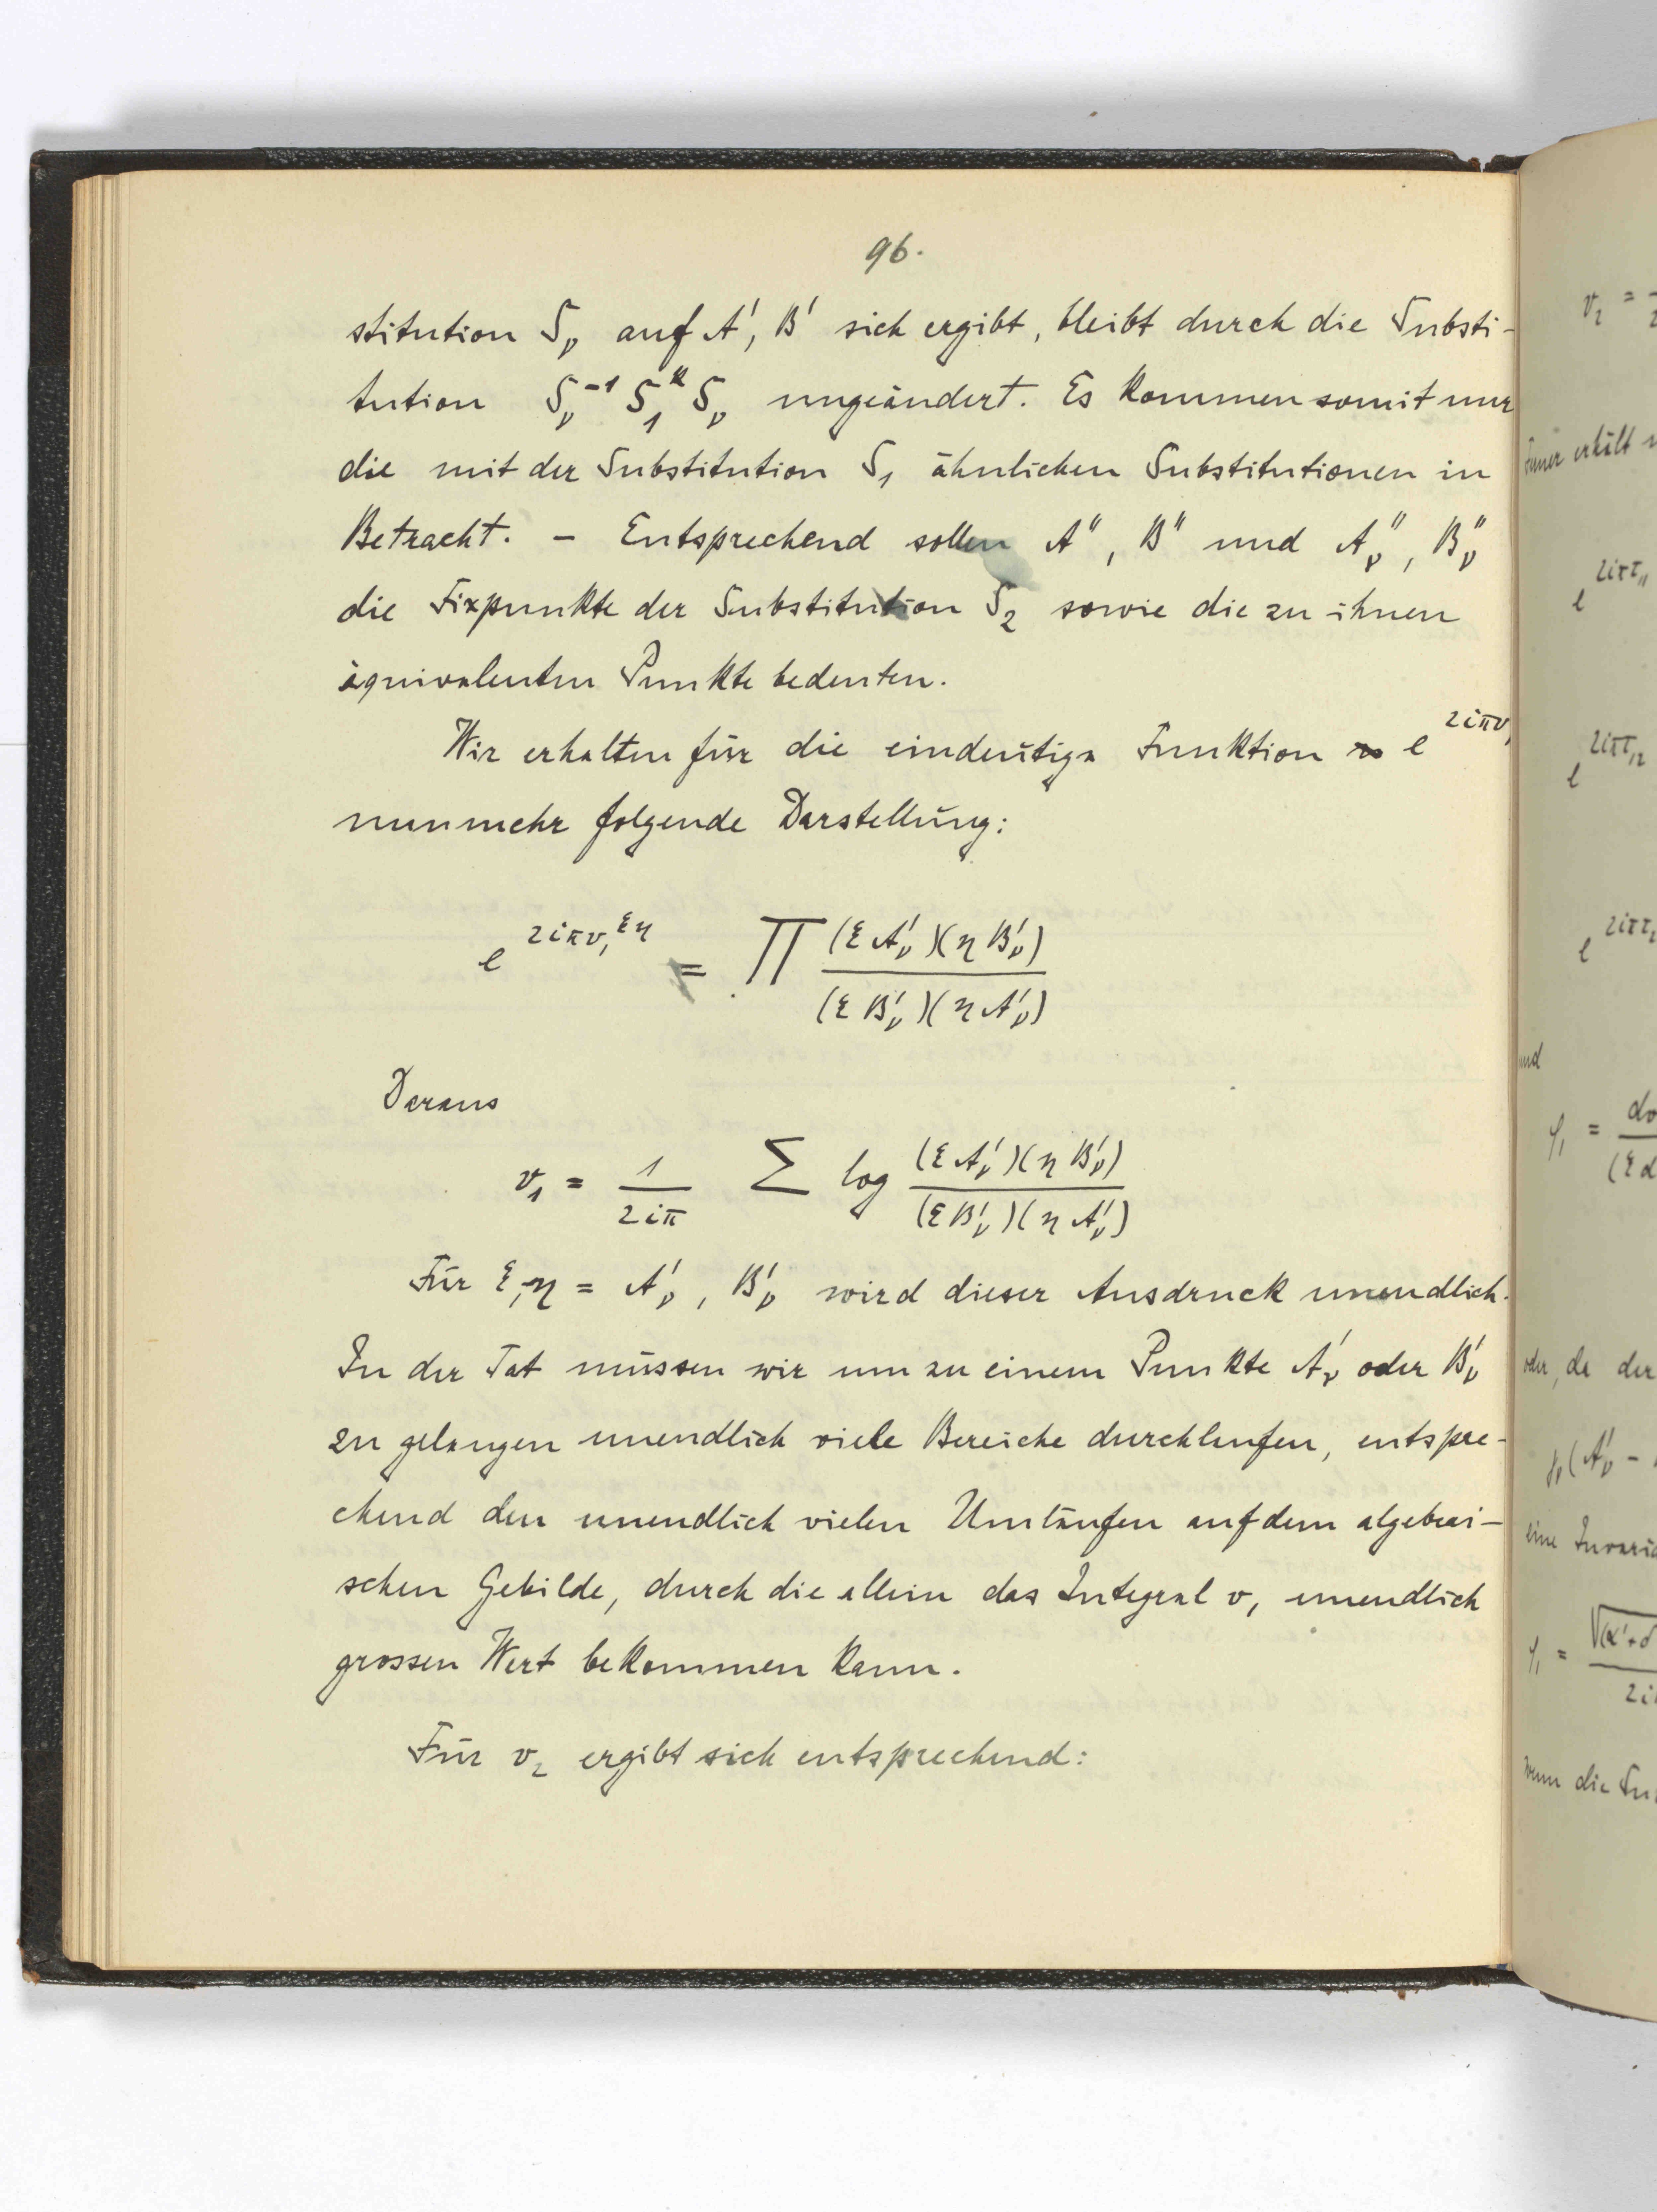 96.
stitution S_ν auf A', B' sich ergibt, bleibt durch die Substi-
tution S_ν^{-1} S_1^k S_ν ungeändert. Es kommen somit nur
die mit der Substitution S_1 ähnlichen Substitutionen in
Betracht. – Entsprechend sollen A'', B'' und A''_ν, B''_ν
die Fixpunkte der Substitution S_2 sowie die zu ihnen
äquivalenten Punkte bedeuten.
Wir erhalten für die eindeutige Funktion e^{2iπv_1}
nunmehr folgende Darstellung:
e^{2iπv_1^{ξη}} = ∏ (ξA'_ν)(ηB'_ν) / (ξB'_ν)(ηA'_ν)
Daraus
v_1 = 1/2iπ ∑ log (ξA'_ν)(ηB'_ν) / (ξB'_ν)(ηA'_ν)
Für ξ,η = A'_ν, B'_ν wird dieser Ausdruck unendlich.
In der Tat müssen wir um zu einem Punkte A'_ν oder B'_ν
zu gelangen unendlich viele Bereiche durchlaufen, entspre-
chend den unendlich vielen Umläufen auf dem algebrai-
schen Gebilde, durch die allein das Integral v_1 unendlich
grossen Wert bekommen kann.
Für v_2 ergibt sich entsprechend:
v_2 =
erhält
e^{2iπτ_11}
e^{2iπτ_12}
e^{2iπτ
und
φ_1 = dv
(ξd
oder, da der
(A'_ν -
eine Invari
φ_1 = √(α'+δ
2i
wenn die Su